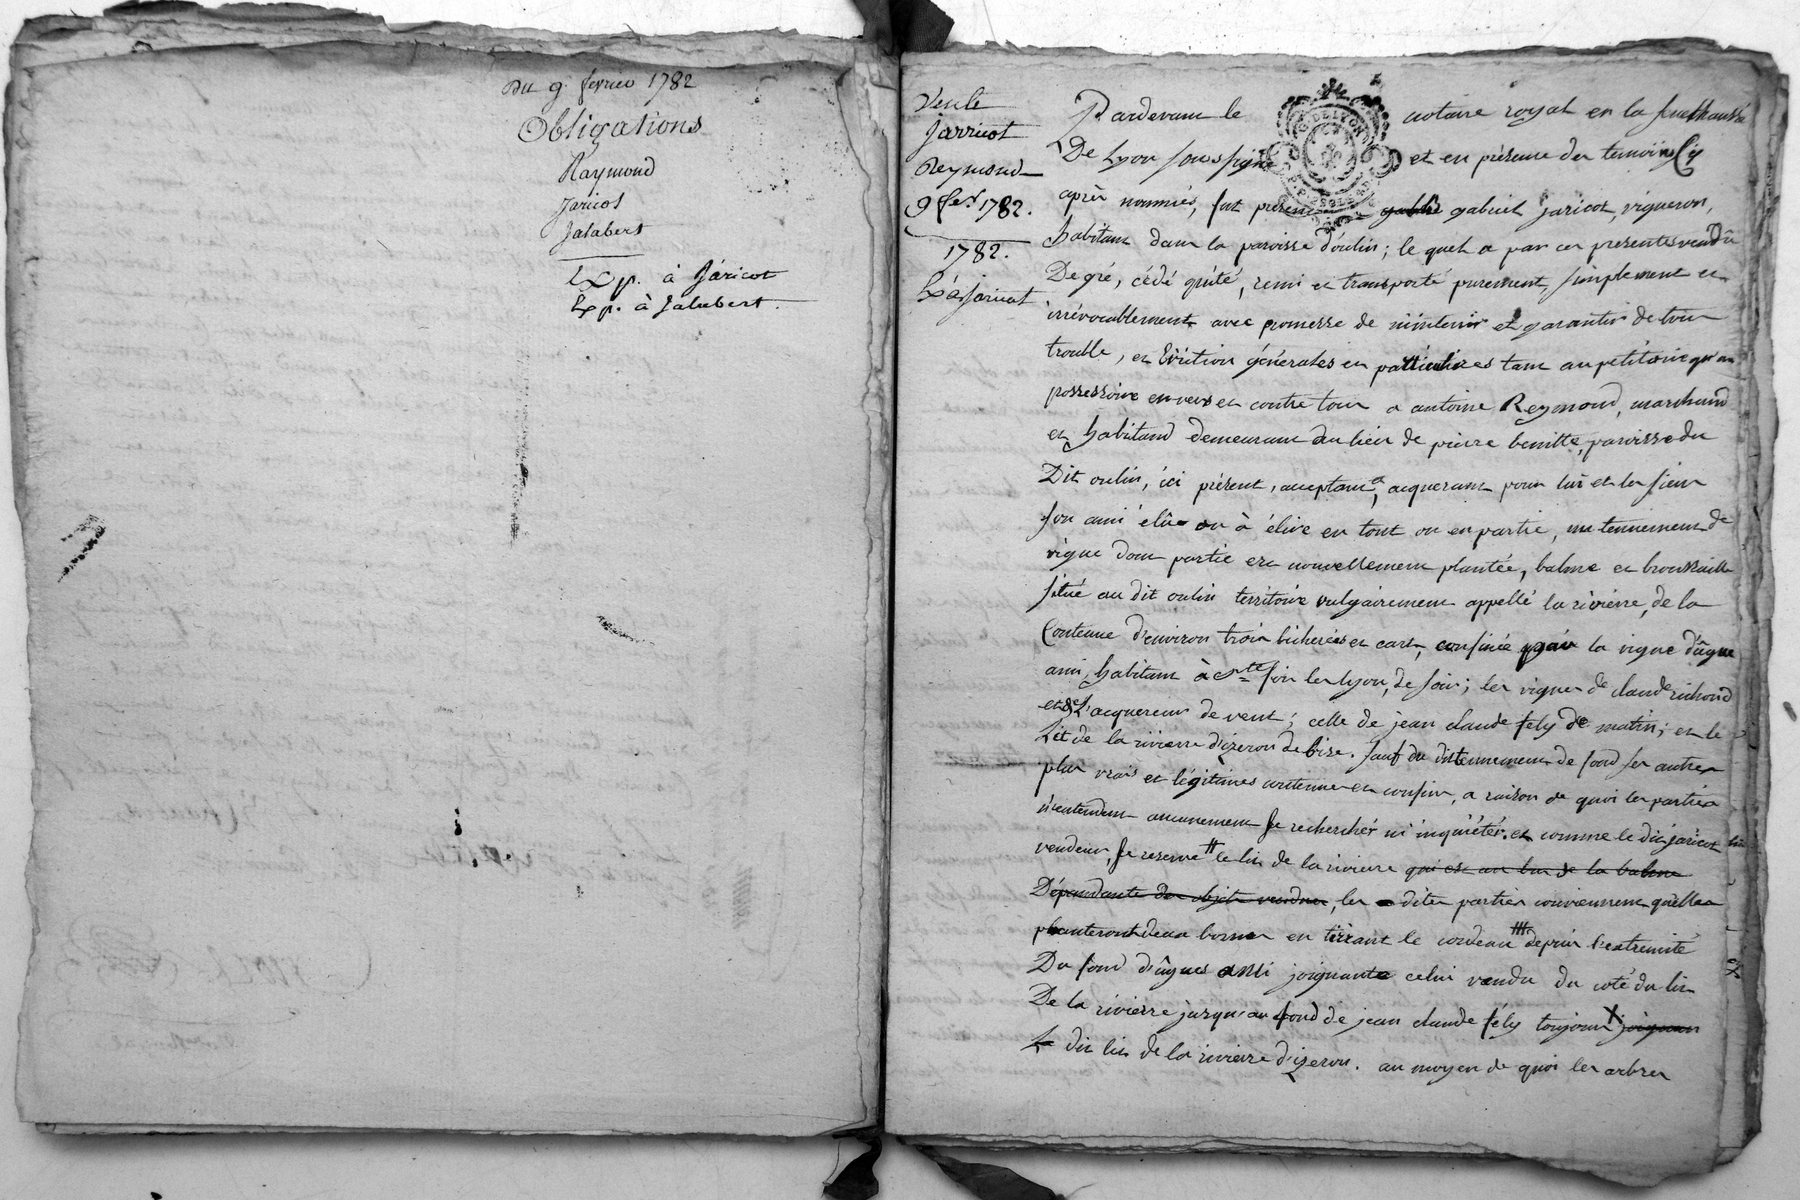 Du 9 fevrier 1782
Obligations
Raymond
Jaricot
Jalabert
Exp. à Jaricot
Exp. à Jalabert.
Vente
Jarricot
Reymond
9 fer. 1782.
1782.
Ex à Jaricot
Pardevant le notaire royal en la senechaussé
De Lyon soussigné et en présence des temoins cy
après nommés, fut present gabriel jaricot, vigneron,
habitant dans la paroisse d'oulin; le quel a par ces presentes vendû
De gré, cédé quité, remi et transporté purement, simplement et
irrévocablement avec promesse de maintenir et garantir de tous
trouble, et Eviction générales et particulières tant au petitoire qu'au
possessoire envers et contre tous a antoine Reymond, marchand
et habitand demeurant au lieu de pierre benitte, paroisse du
Dit oulin, ici présent, acceptant, acquerant pour lui et les siens
son ami élû ou à élire en tout ou en partie, un tennement de
vigne dont partie est nouvellement plantée, balme et broussaille
situé au dit oulin territoire vulgairement appellé la rivierre, de la
Contenue d'environ trois bicherées et cart, confinée par la vigne d'ûgne
ami, habitant à Ste foi les lyon, de soir; les vignes de claude richond
et de L'acquereur de vent; celle de jean claude fely de matin; et le
Lit de la rivierre d'izeron de bise. sauf du dit tennement de fond ses autres
plus vrais et légitimes contenues et confins, a raison de quoi les parties
n'entendent aucunement se rechercher ni inquiéter. et comme le dit jaricot
vendeur, se reserve # le lit de la rivierre qui est au bas de la balme
Dépendante des objets vendus, les dites parties conviennent qu'elles
planteront deux bornes en tirrant le cordeau depuis l'extremité
Du fond d'ûgnes ami joignant celui vendu du coté du lit
De la rivierre jusqu'au fond de jean claude fély toujours X joignant
Le dit lit de la rivierre d'izeron. au moyen de quoi les arbres